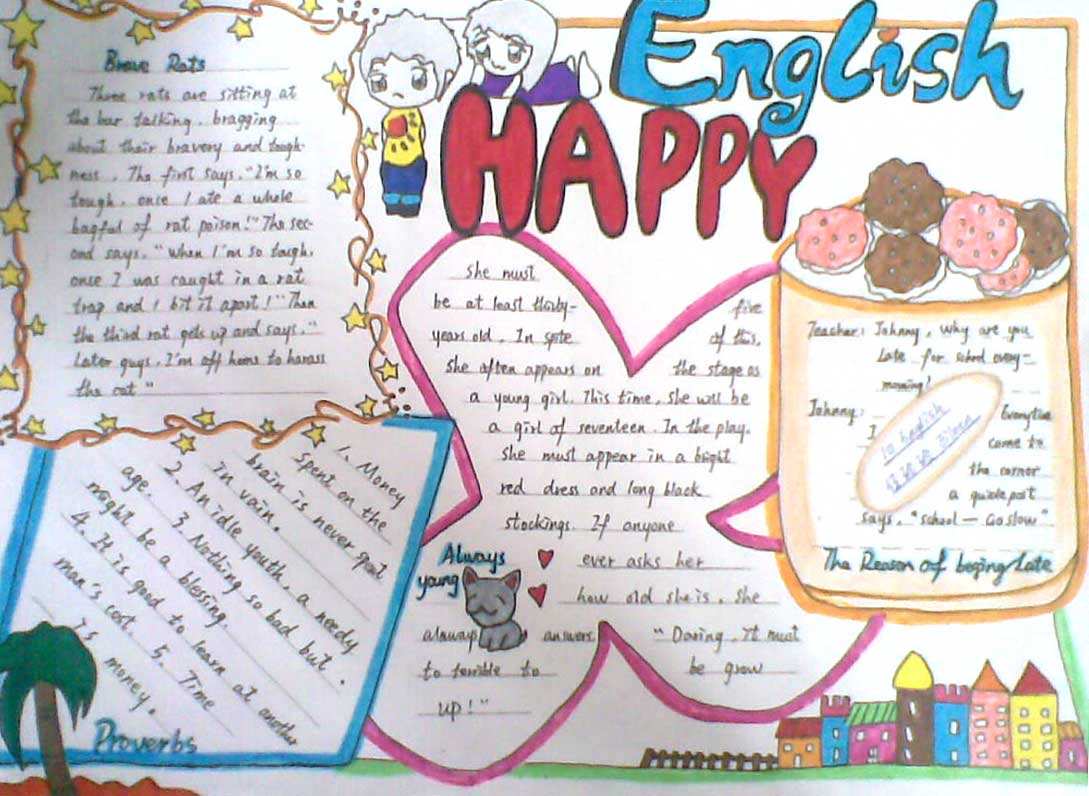 English
HAPPY
Brave Rats
Three rats are sitting at
the bar talking. bragging
about their bravery and tough-
ness. The first says, "I'm so
tough. once I ate a whole
bagful of rat poison!" The sec-
ond says. "When I'm so tough.
once I was caught in a rat
trap and I bit it apart!" Then
the third rat gets up and says."
Later guys, I'm off home to harass
the cat"
She must
be at least thirty- five
years old. In spite of this,
she often appears on the stage as
a young girl. This time, she will be
a girl of seventeen. In the play.
She must appear in a bright
red dress and long black
stockings. If anyone
ever asks her
how old she is, she
always answers "Daring, It must
to terrible to be grow
up!"
Always
young
Teacher: Johnny, why are you
late for school every-
morning!
Johnny: Everytime
I come to
the corner
a guide post
says, "school — Go slow".
The Reason of beging late
1. Money
spent on the
brain is never spent
in vain.
2. An idle youth, a needy
age. 3. Nothing so bad but
might be a blessing.
4. It is good to learn at another
man's cost. 5. Time
is money.
Proverbs